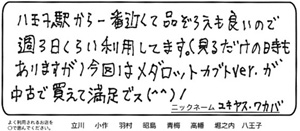 八王子駅から一番近くて品ぞろえも良いので
週3日くらい利用してます。(見るだけの時も
ありますが)今回はメダロットカブトver.が
中古で買えて満足でス(^^)!
ニックネーム ユキヤス・ワカバ
よく利用されるお店を
○で囲んでください。 立川 小作 羽村 昭島 青梅 高幡 堀之内 八王子